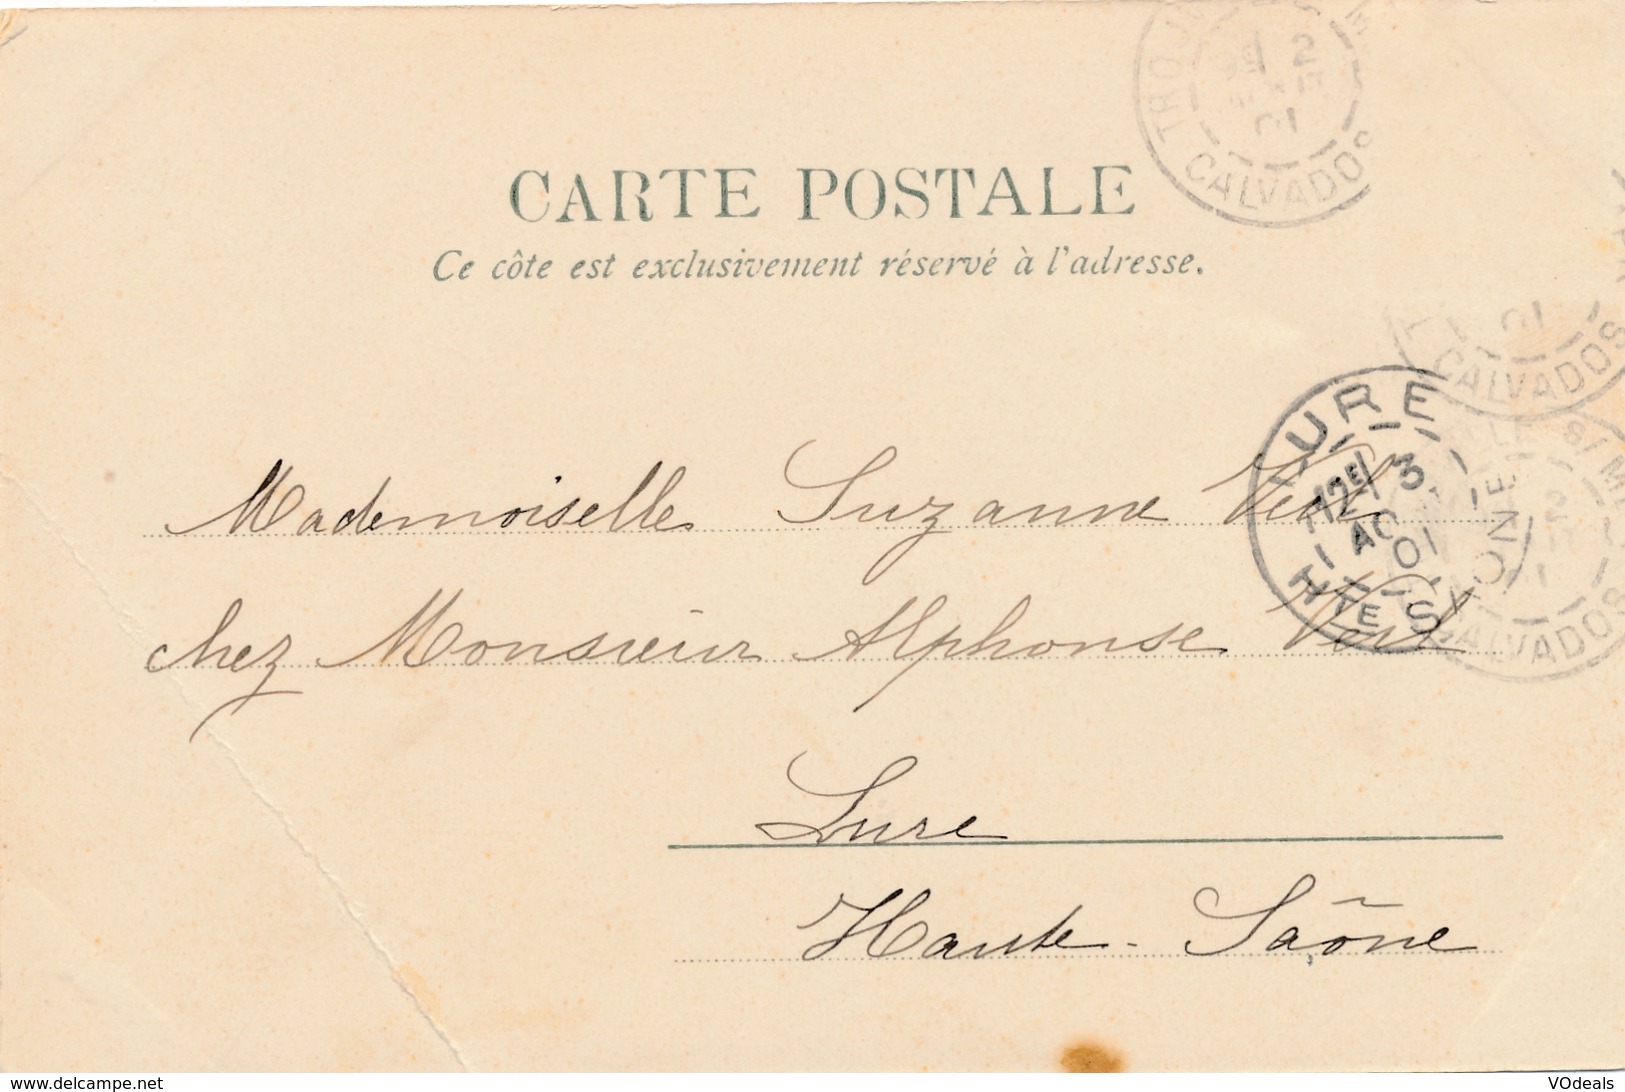 CALVADOS
2
01
CARTE POSTALE
Ce côte est exclusivement réservé à l'adresse.
01
CALVADOS
LURE
12E 3
AO
01
HTE SAONE
S/ M
CALVADOS
Mademoiselle Suzanne
chez Monsieur Alphonse
Lure
Haute-Saône
www.delcampe.net
VOdeals